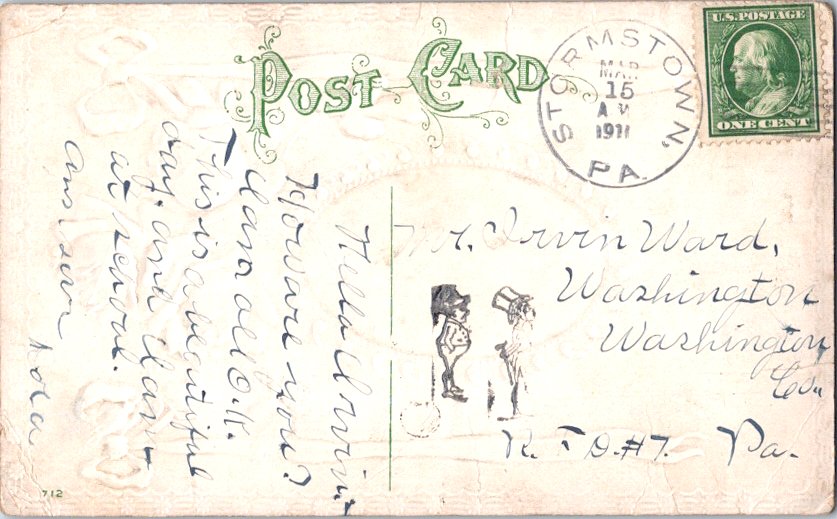 POST CARD
U.S. POSTAGE
ONE CENT
STORMSTOWN,
MAR
15
A.M
1911
PA.
Hello Irvin:
How are you?
I am all O.K.
This is a beautiful
day, and I am
at school.
Ans. soon
Mr. Irvin Ward,
Washington
Washington
Co.,
R. F. D. #7. Pa.
712